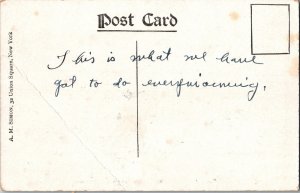 Post Card
This is what we have
got to do everymorning.
A. M. SIMON, 32 Union Square, New York.